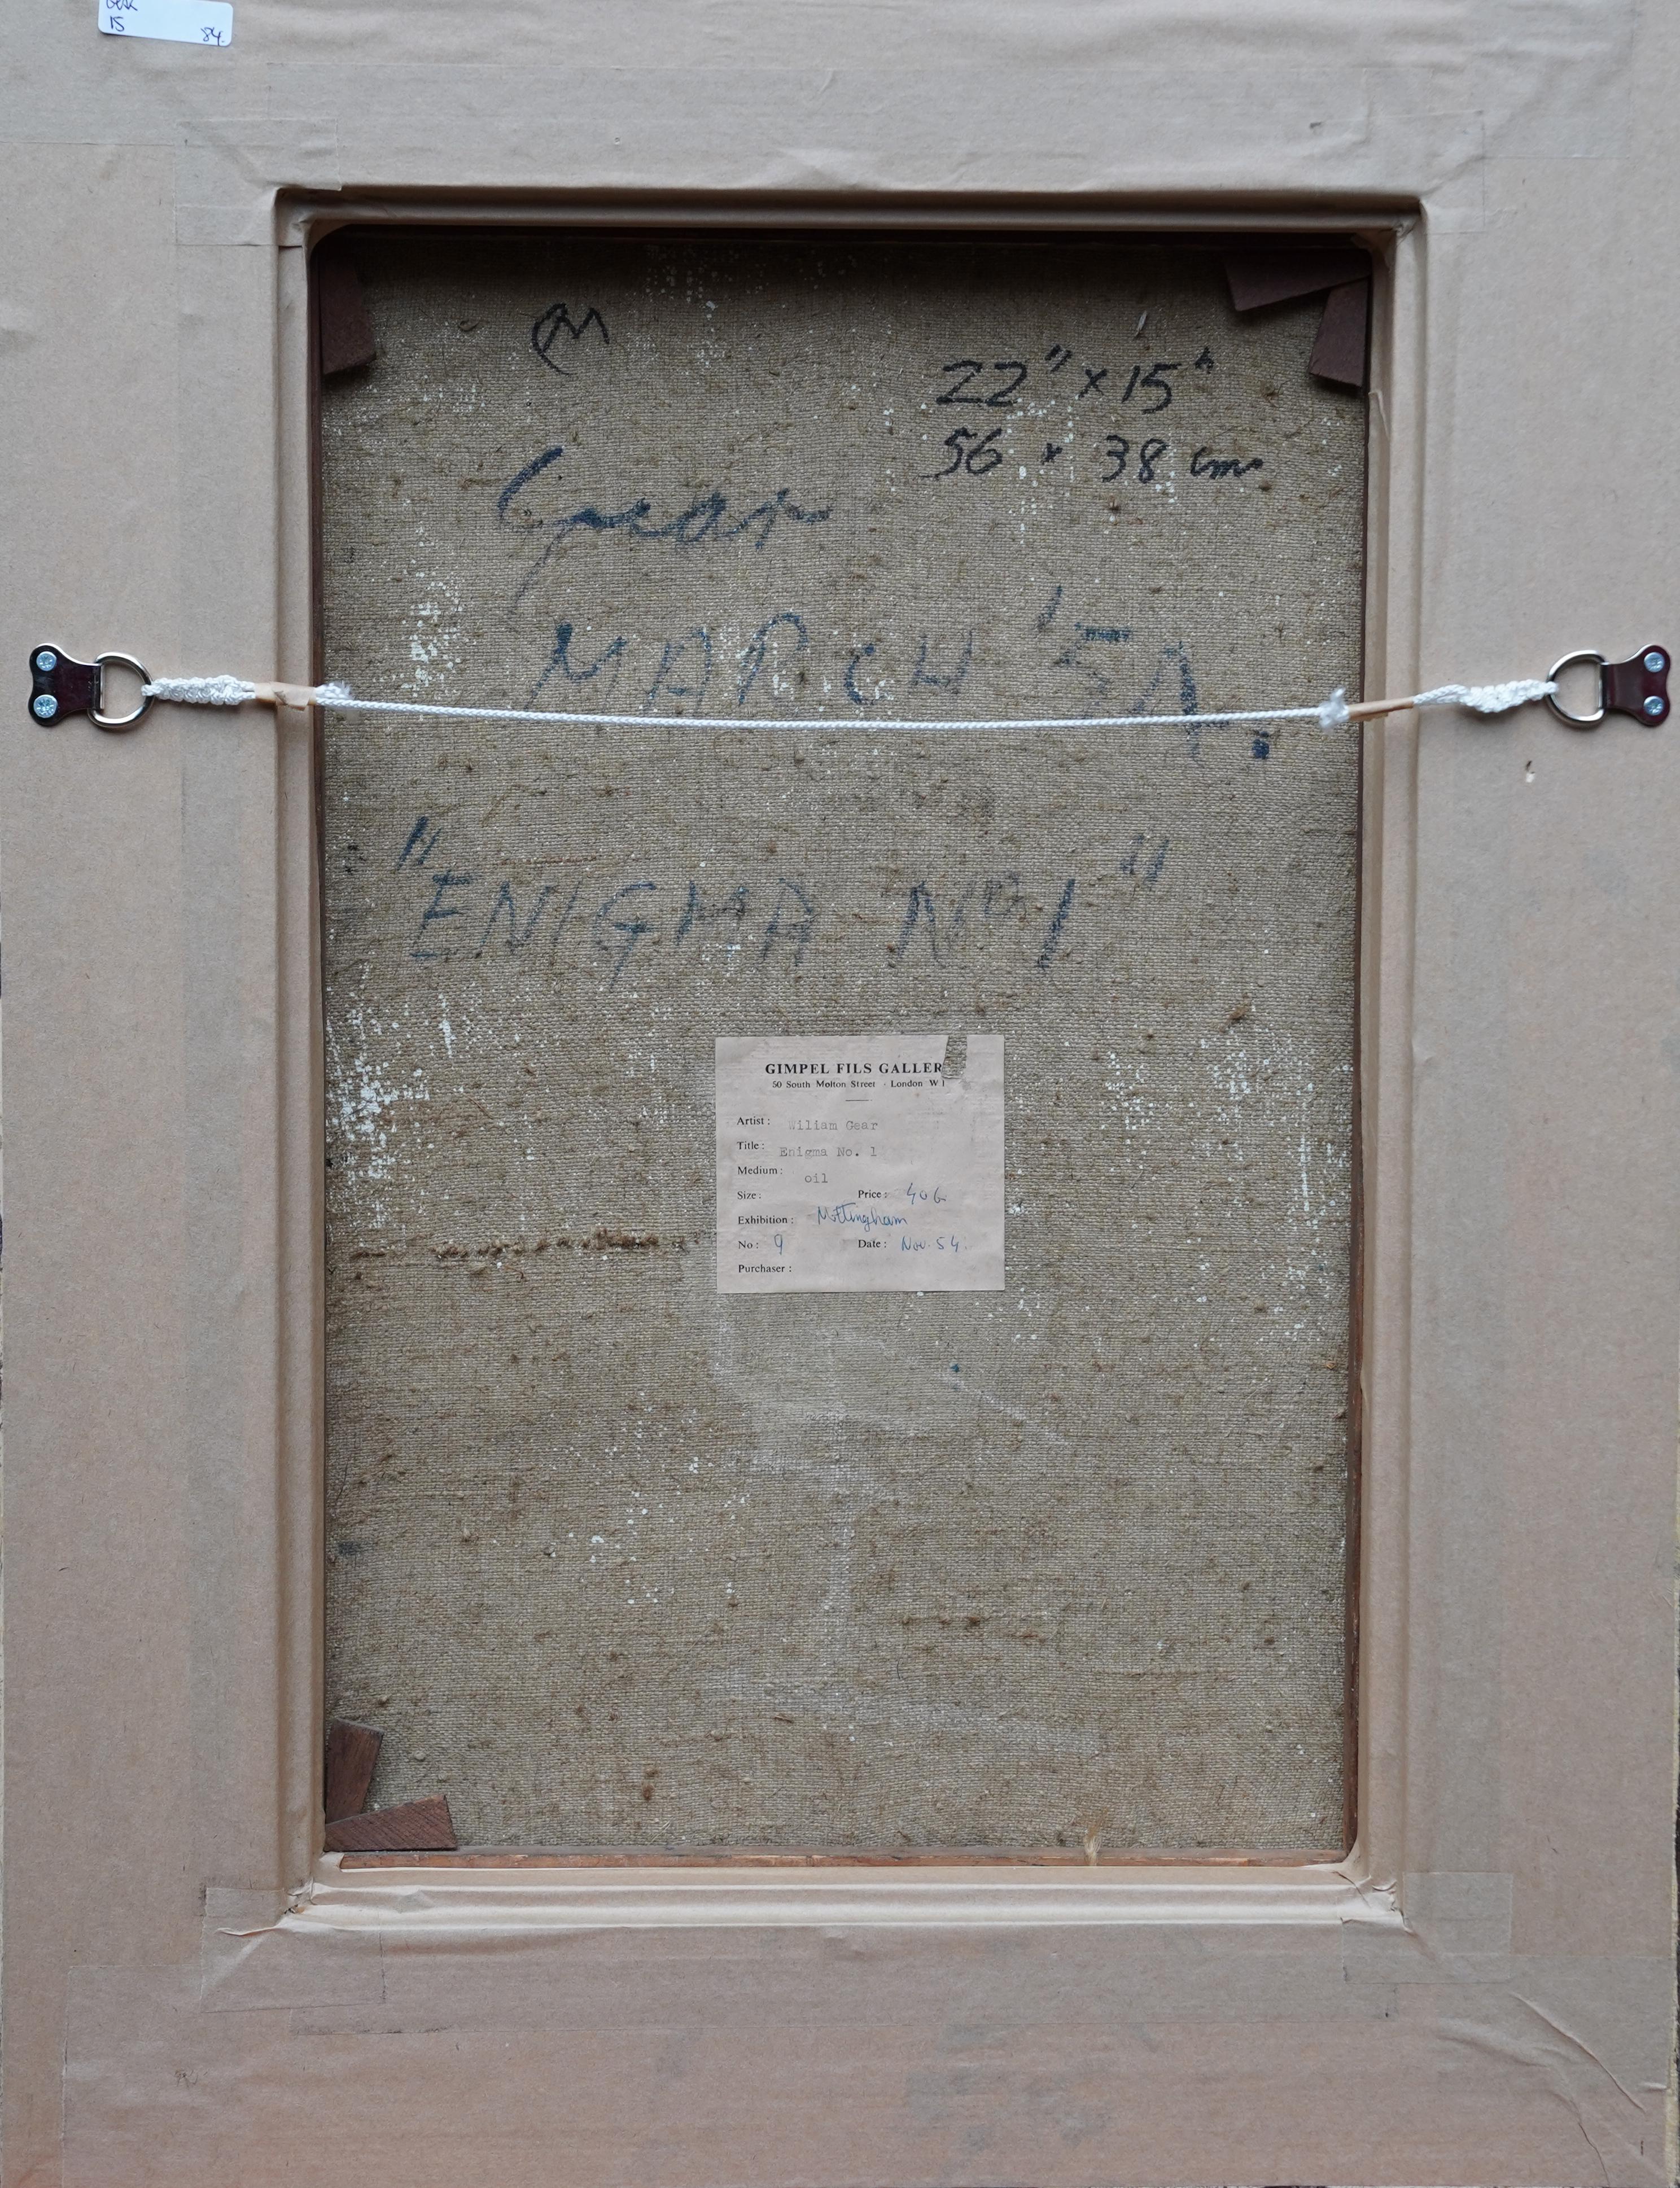 15 84.
22" × 15"
56 × 38 cm
Gear
MARCH '54.
"ENIGMA Nº 1"
GIMPEL FILS GALLER
50 South Molton Street · London W1
Artist: Wiliam Gear
Title: Enigma No. 1
Medium: oil
Size: Price: 40 G
Exhibition: Nottingham
No: 9 Date: Nov. 54.
Purchaser: